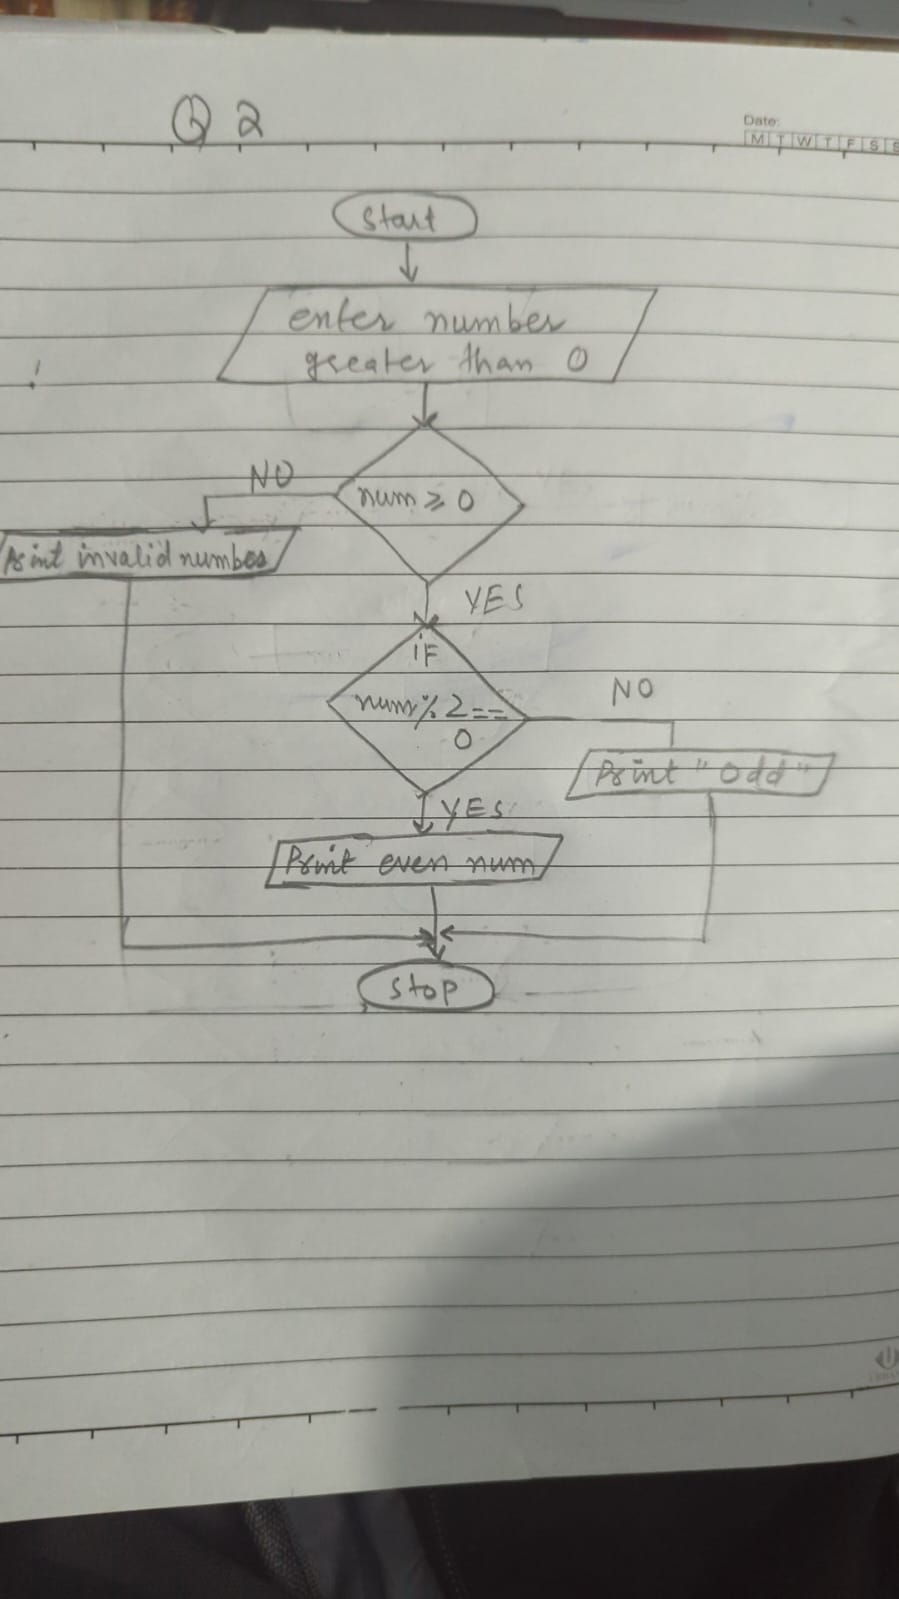 Q 2
Date:
M T W T F S S
Start
enter number
greater than 0
num ≥ 0
NO
Print invalid number
YES
IF
num % 2 ==
0
NO
Print "Odd"
YES
Print even num
Stop